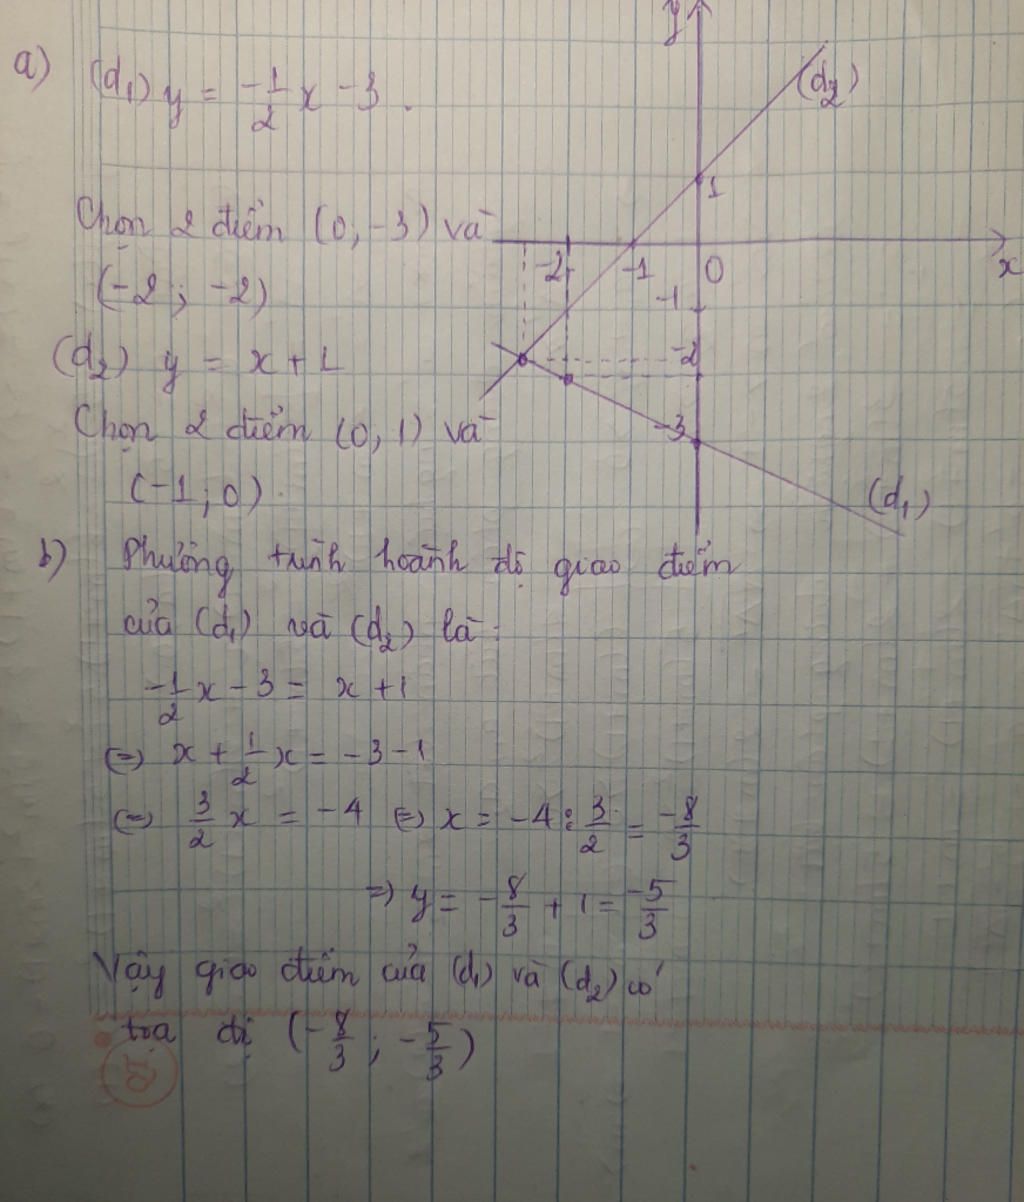 a) (d₁) y = -1/2 x - 3.
Chọn 2 điểm (0, -3) và
(-2; -2)
(d₂) y = x + 1
Chọn 2 điểm (0, 1) và
(-1; 0).
y
(d₂)
1
-2 -1 0 x
-1
-2
-3
(d₁)
b) Phương trình hoành độ giao điểm
của (d₁) và (d₂) là:
-1/2 x - 3 = x + 1
(=) x + 1/2 x = -3 - 1
(=) 3/2 x = -4 (=) x = -4 : 3/2 = -8/3
=) y = -8/3 + 1 = -5/3
Vậy giao điểm của (d₁) và (d₂) có
tọa độ (-8/3; -5/3)